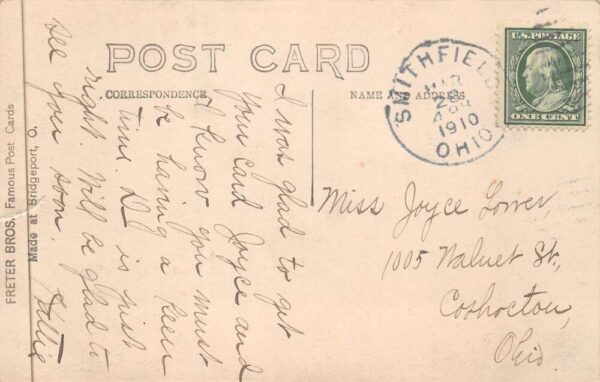 POST CARD
CORRESPONDENCE
NAME AND ADDRESS
U.S. POSTAGE
ONE CENT
SMITHFIELD
MAR
28
4 PM
1910
OHIO
I was glad to get
Your card Joyce and
I know you must
be having a keen
time. is just
right. Will be glad to
see you soon.
Miss Joyce Lower,
1005 Walnut St,
Coshocton,
Ohio.
FRETER BROS. Famous Post Cards
Made at Bridgeport, O.